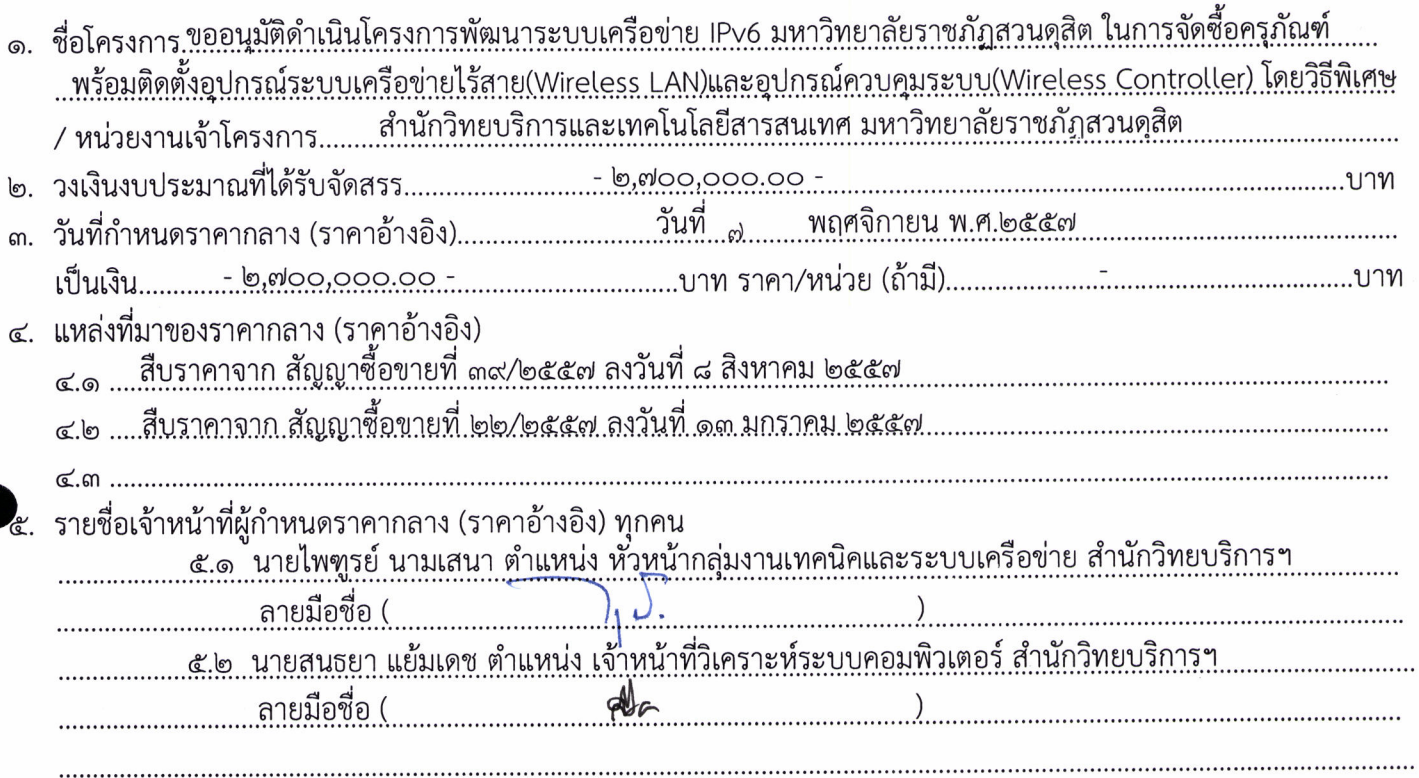 ๑. ชื่อโครงการ ขออนุมัติดำเนินโครงการพัฒนาระบบเครือข่าย IPv6 มหาวิทยาลัยราชภัฏสวนดุสิต ในการจัดซื้อครุภัณฑ์
พร้อมติดตั้งอุปกรณ์ระบบเครือข่ายไร้สาย(Wireless LAN)และอุปกรณ์ควบคุมระบบ(Wireless Controller) โดยวิธีพิเศษ
/ หน่วยงานเจ้าโครงการ สำนักวิทยบริการและเทคโนโลยีสารสนเทศ มหาวิทยาลัยราชภัฏสวนดุสิต
๒. วงเงินงบประมาณที่ได้รับจัดสรร - ๒,๗๐๐,๐๐๐.๐๐ - บาท
๓. วันที่กำหนดราคากลาง (ราคาอ้างอิง) วันที่ ๗ พฤศจิกายน พ.ศ.๒๕๕๗
เป็นเงิน - ๒,๗๐๐,๐๐๐.๐๐ - บาท ราคา/หน่วย (ถ้ามี) - บาท
๔. แหล่งที่มาของราคากลาง (ราคาอ้างอิง)
๔.๑ สืบราคาจาก สัญญาซื้อขายที่ ๓๙/๒๕๕๗ ลงวันที่ ๘ สิงหาคม ๒๕๕๗
๔.๒ สืบราคาจาก สัญญาซื้อขายที่ ๒๒/๒๕๕๗ ลงวันที่ ๑๓ มกราคม ๒๕๕๗
๔.๓
๕. รายชื่อเจ้าหน้าที่ผู้กำหนดราคากลาง (ราคาอ้างอิง) ทุกคน
๕.๑ นายไพฑูรย์ นามเสนา ตำแหน่ง หัวหน้ากลุ่มงานเทคนิคและระบบเครือข่าย สำนักวิทยบริการฯ
ลายมือชื่อ ( )
๕.๒ นายสนธยา แย้มเดช ตำแหน่ง เจ้าหน้าที่วิเคราะห์ระบบคอมพิวเตอร์ สำนักวิทยบริการฯ
ลายมือชื่อ ( )